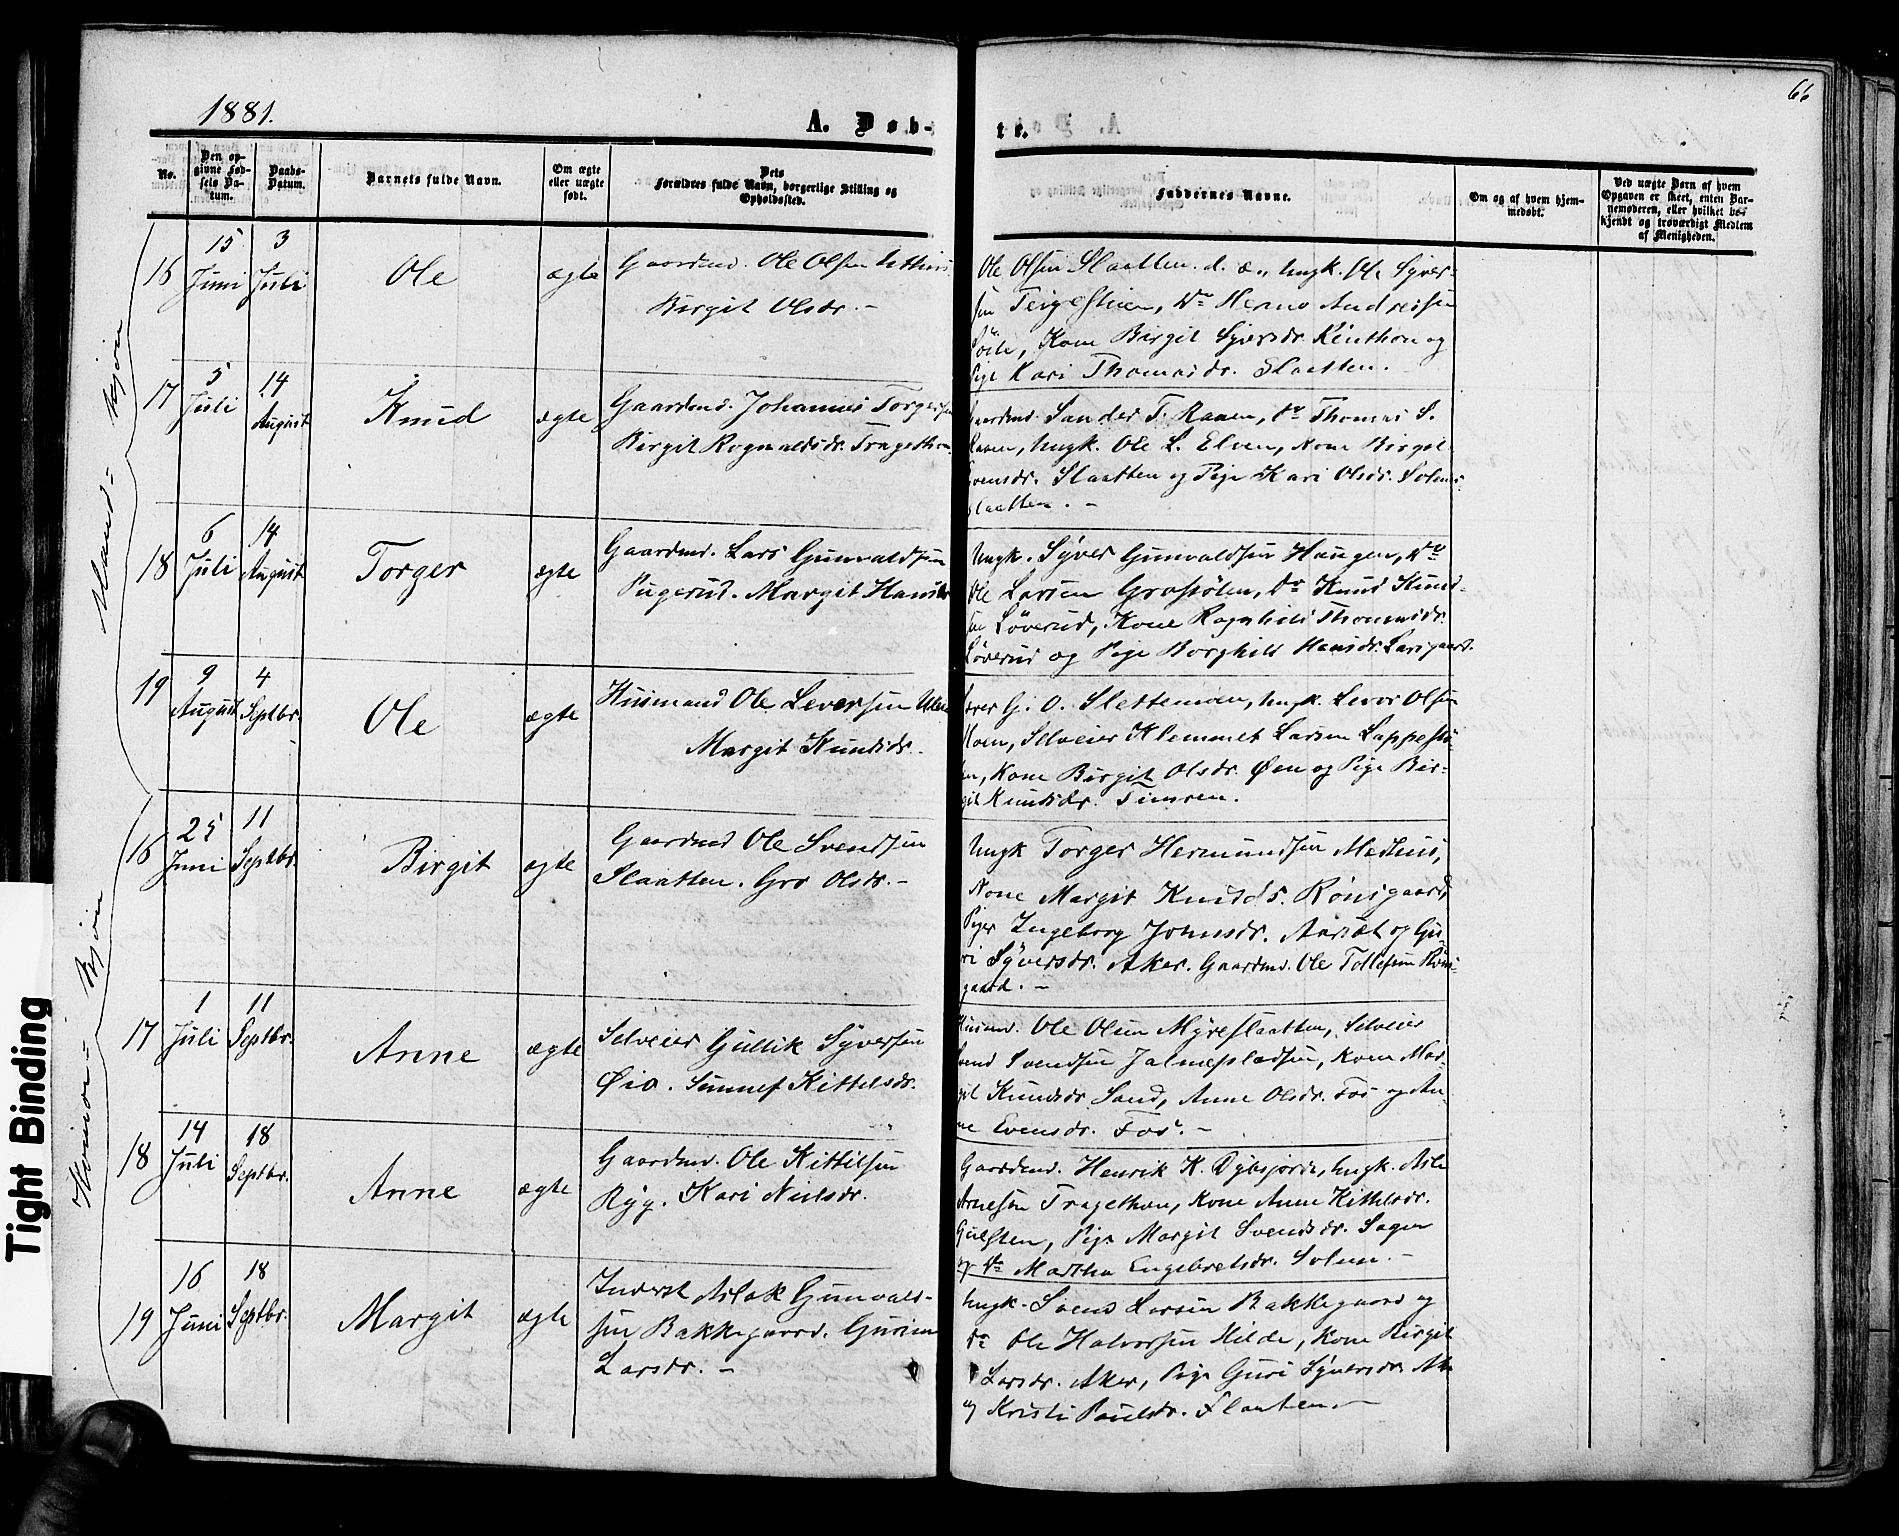 66
1881.
A. Døb-
te.
No.
Den op-
givne Fød-
sels Da-
tum.
Daabs-
Datum.
Barnets fulde Navn.
Om ægte
eller uægte
født.
Dets
Forældres fulde Navn, borgerlige Stilling og
Opholdssted.
Faddernes Navne.
Om og af hvem hjem-
medøbt.
Ved uægte Børn af hvem
Opgaven er skeet, enten Bar-
nemoderen, eller hvilket be-
kjendt og troværdigt Medlem
af Menigheden.
Mand-
Kjøn
16
15
Juni
3
Juli
Ole
ægte
Gaardmd. Ole Olsen
Birgit Olsdr. -
Ole Olsen Slaatten. d. æ., Ungk. Ole Syver-
sen Teigestuen, do Andreasen
Kone Birgit Syversdr. Kinthon og
Pige Kari Thomasdr. Slaatten.
17
5
Juli
14
August
Knud
ægte
Gaardmd. Johannes Torgersen
Birgit Rognaldsdr. Tragethon
Gaardmd. Sander T. Raaen, do Thomas S.
Raaen, Ungk. Ole L. Elven, Kone Birgit
Svensdr. Slaatten og Pige Kari Olsdr. Solem-
slaatten. -
18
6
Juli
14
August
Torger
ægte
Gaardmd. Lars Gunvaldsen
Pugerud. Margit Hansdr
Ungk. Syver Gunvaldsen Haugen, do
Ole Larsen Grøstølen, do Knud Knud-
sen Løverud, Kone Ragnhild Thomasdr.
Løverud og Pige Borghild Hansdr. Larsgaard.
19
9
August
4
Septbr.
Ole
ægte
Husmand Ole Leversen
Margit Knudsdr.
G. O. Slettemoen, Ungk. Levor Olsen
Moen, Selveier Klemmet Larsen Lappestø-
len, Kone Birgit Olsdr. Øen og Pige Bir-
git Knudsdr.
Kvinde-
Kjøn
16
25
Juni
11
Septbr.
Birgit
ægte
Gaardmd Ole Svendsen
Slaatten. Gro Olsdr. -
Ungk Torger Hermundsen Medhus,
Kone Margit Knudsd. Rønsgaard,
Piger Ingeborg Jonsdr. Aasæt og Gu-
ri Syversdr. Aker. Gaardmd. Ole Tollefsen Røns-
gaard. -
17
1
Juli
11
Septbr.
Anne
ægte
Selveier Gullik Syversen
Øio. Sunnef Kittelsdr.
Husmd. Ole Olsen Myreslaatten, Selveier
Svend Svendsen Jalmepladsen, Kone Mar-
git Knudsdr. Sand, Anne Olsdr. Fos og An-
ne Evensdr. Fos. -
18
14
Juli
18
Septbr.
Anne
ægte
Gaardmd. Ole Kittilsen
Ryg. Kari Nielsdr.
Gaardmd. Henrik K. Dybsjorde, Ungk. Asle
Arnesen Tragethon, Kone Anne Kittelsdr.
Gulsten, Pige Margit Svendsdr. Sagen
og do Martha Engebretsdr. Solem. -
19
16
Juni
18
Septbr.
Margit
ægte
Inderst Aslak Gunvald-
sen Bakkegaard. Gurine
Larsdr. -
Ungk. Svend Larsen Bakkegaard og
do Ole Halvorsen Milde, Kone Birgit
Larsdr. Aker, Pige Guri Syversdr.
og Kristi Paulsdr. Slaatten. -
Tight Binding